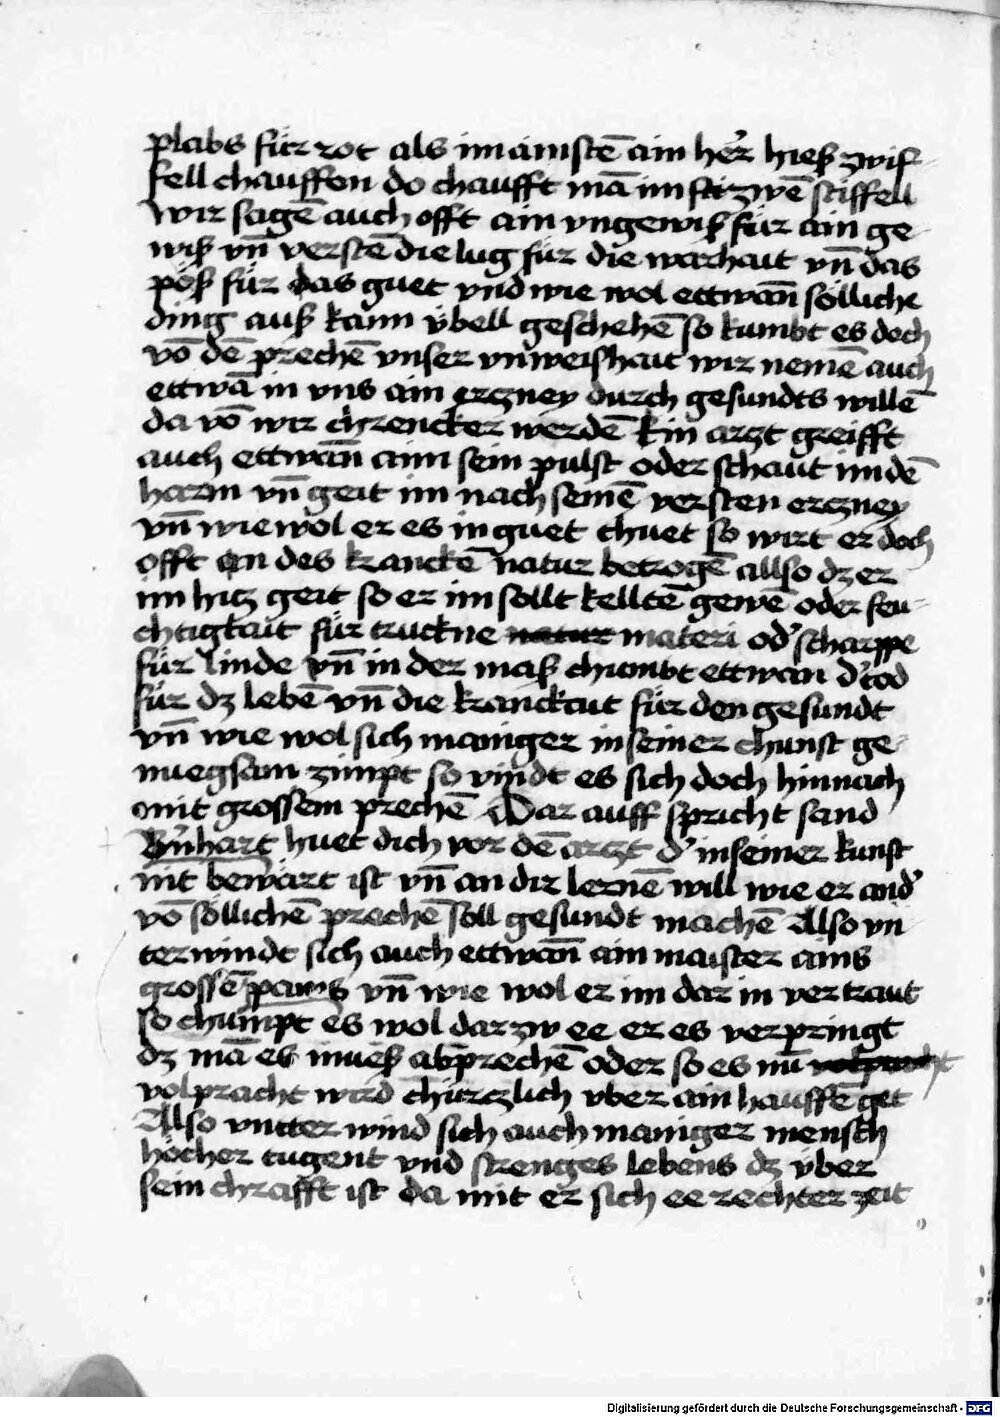 plabs für rot als im ainstē ain her̄ hieß zwif-
fell chauffen do chaufft mā im zwē stiffell
wir sagē auch offt ain vngewiß für ain ge-
wiß vn̄ verstē die lug für die warhait vn̄ das
pöß für das guet vnd wie wol ettwan̄ sölliche
ding auß kann v̈bell geschehē so kumbt es doch
vō dē prechē vnser vnweishait wir nemē auch
ettwā in vns ain erczney durch gesundts willē
da vō wir chrencker werdē Ein arczt greifft
auch ettwan̄ aim sein pulst oder schaut im dē
harm vn̄ geit im nach seinē versten erczney
vn̄ wie wol er es in guet thuet so wirt er doch
offt an des kranckē natur betrogē allso dz er
im hicz geit so er im sollt kelltē gewē oder feu-
chtigkait für truckne materi od' scharppe
für linde vn̄ in der maß chumbt ettwan d' tod
für dz lebē vn̄ die kranckait für den gesundt
vn̄ wie wol sich maniger in seiner chunst ge-
nuegsam zimpt so vindt es sich doch hinnach
mit grossem prechē Dar auff spricht sand
Bn̄hart huet dich vor dē arczt d' in seiner kunst
nit bewärt ist vn̄ an dir lernē will wie er and'
vō söllichē prechē soll gesundt machē Also vn-
terwindt sich auch ettwan̄ ain maister ains
grossē paws vn̄ wie wol er im dar in vertraut
so chumpt es wol darzw ee er es verpringt
dz mā es mueß abprechē oder so es nū
volpracht wird chürczlich vber ain hauffē get
Also vntterwind sich auch maniger mensch
höcher tugent vnd strenges lebens dz v̈ber
sein chrafft ist da mit er sich ee rechter zeit
Digitalisierung gefördert durch die Deutsche Forschungsgemeinschaft - DFG